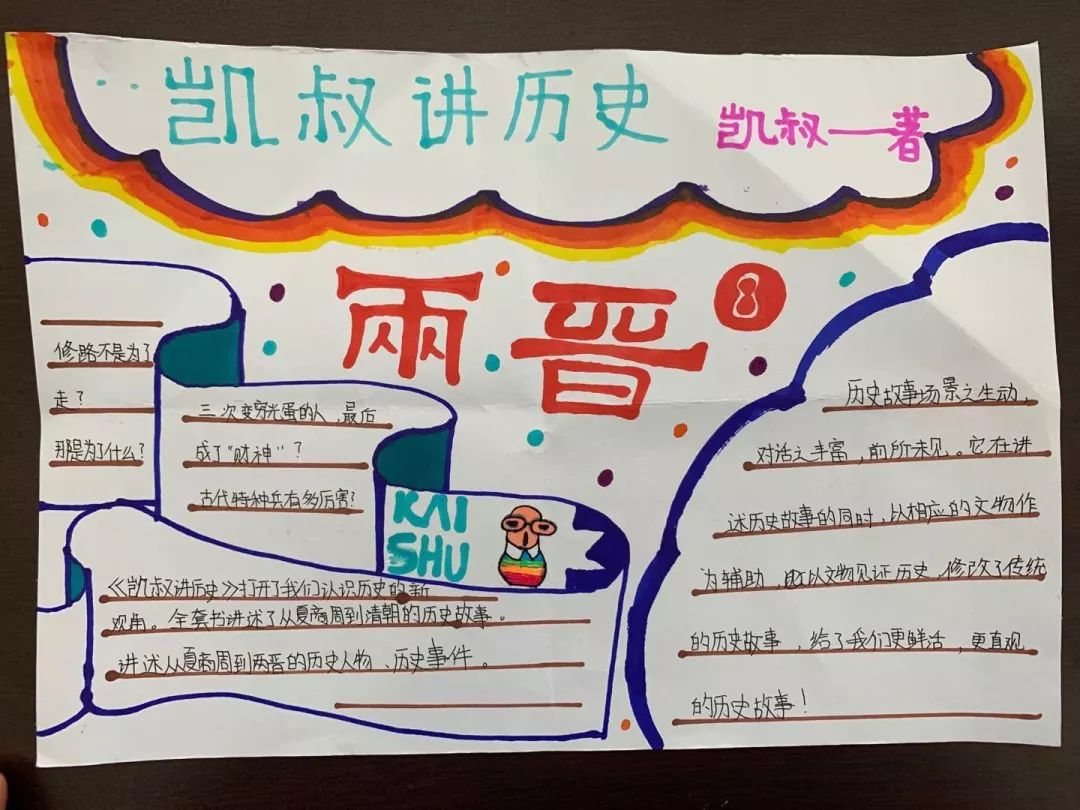 凯叔讲历史
凯叔一著
兩晋
8
修路不是为了
走？
那是为了什么？
三次变穷光蛋的人，最后
成了"财神"？
古代特种兵有多厉害？
KAI
SHU
《凯叔讲历史》打开了我们认识历史的新
观角。全套书讲述了从夏商周到清朝的历史故事。
讲述从夏商周到两晋的历史人物、历史事件。
历史故事场景之生动，
对话之丰富，前所未见。它在讲
述历史故事的同时，以相应的文物作
为辅助，以文物见证历史，修改了传统
的历史故事，给了我们更鲜活，更直观
的历史故事！